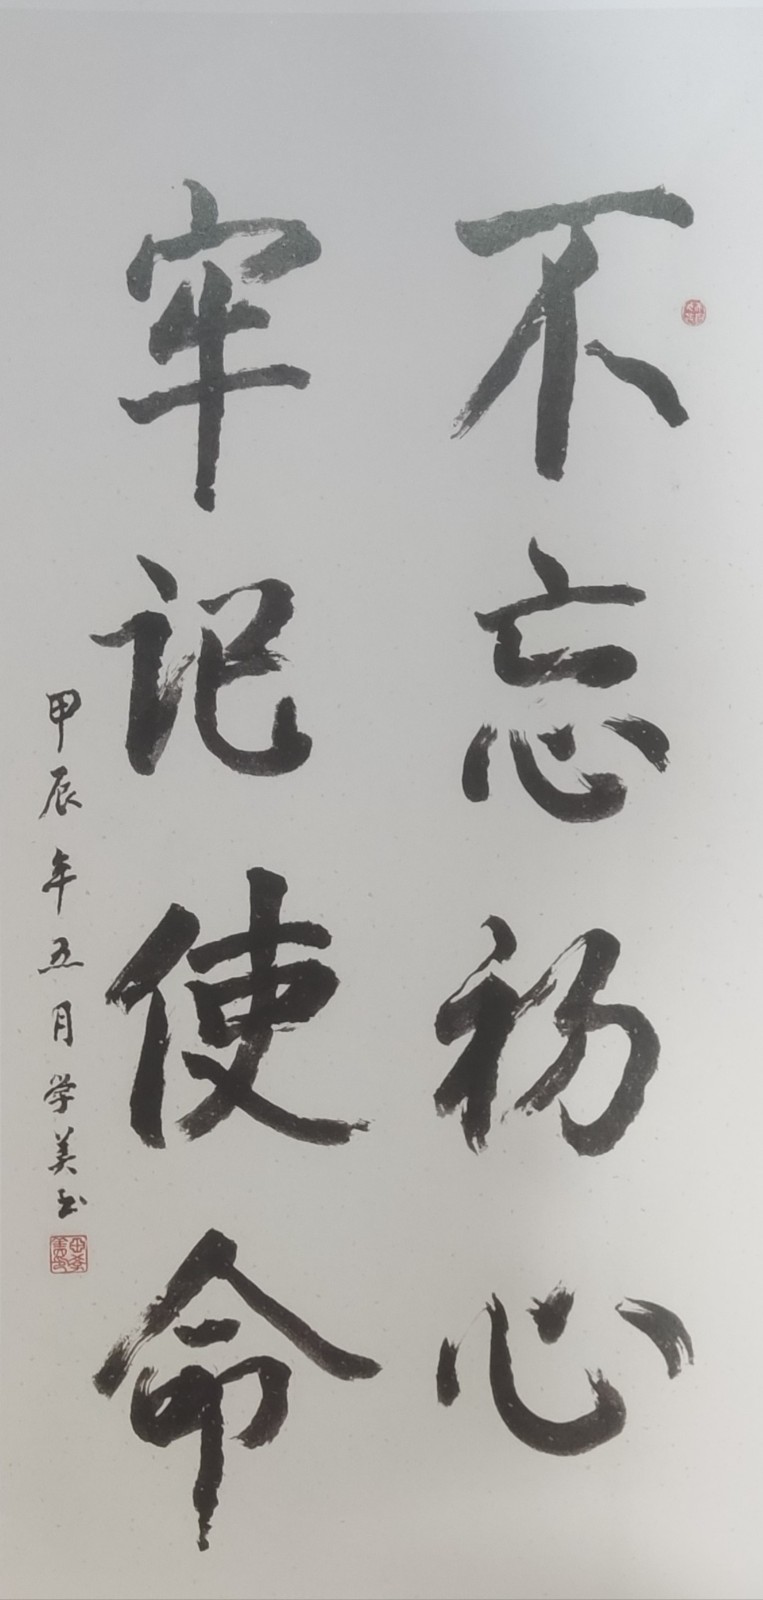 不忘初心
牢记使命
甲辰年五月学美书